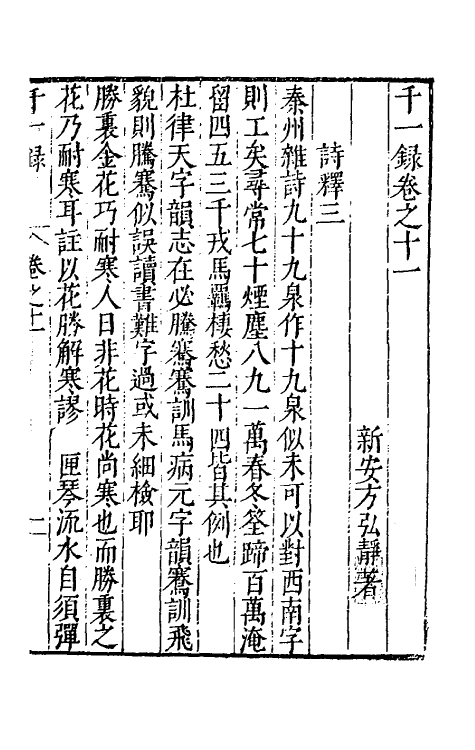 千一録卷之十一
新安方弘靜著
詩釋三
秦州雜詩九十九泉作十九泉似未可以對西南字
則工矣尋常七十煙塵八九一萬春冬筌蹄百萬淹
留四五三千戎馬羈棲愁二十四皆其例也
杜律天字韻志在必騰騫騫訓馬病元字韻騫訓飛
貌則騰騫似誤讀書難字過或未細檢耶
勝裏金花巧耐寒人日非花時花尚寒也而勝裏之
花乃耐寒耳註以花勝解寒謬 匣琴流水自須彈
千一録 卷之十一 一